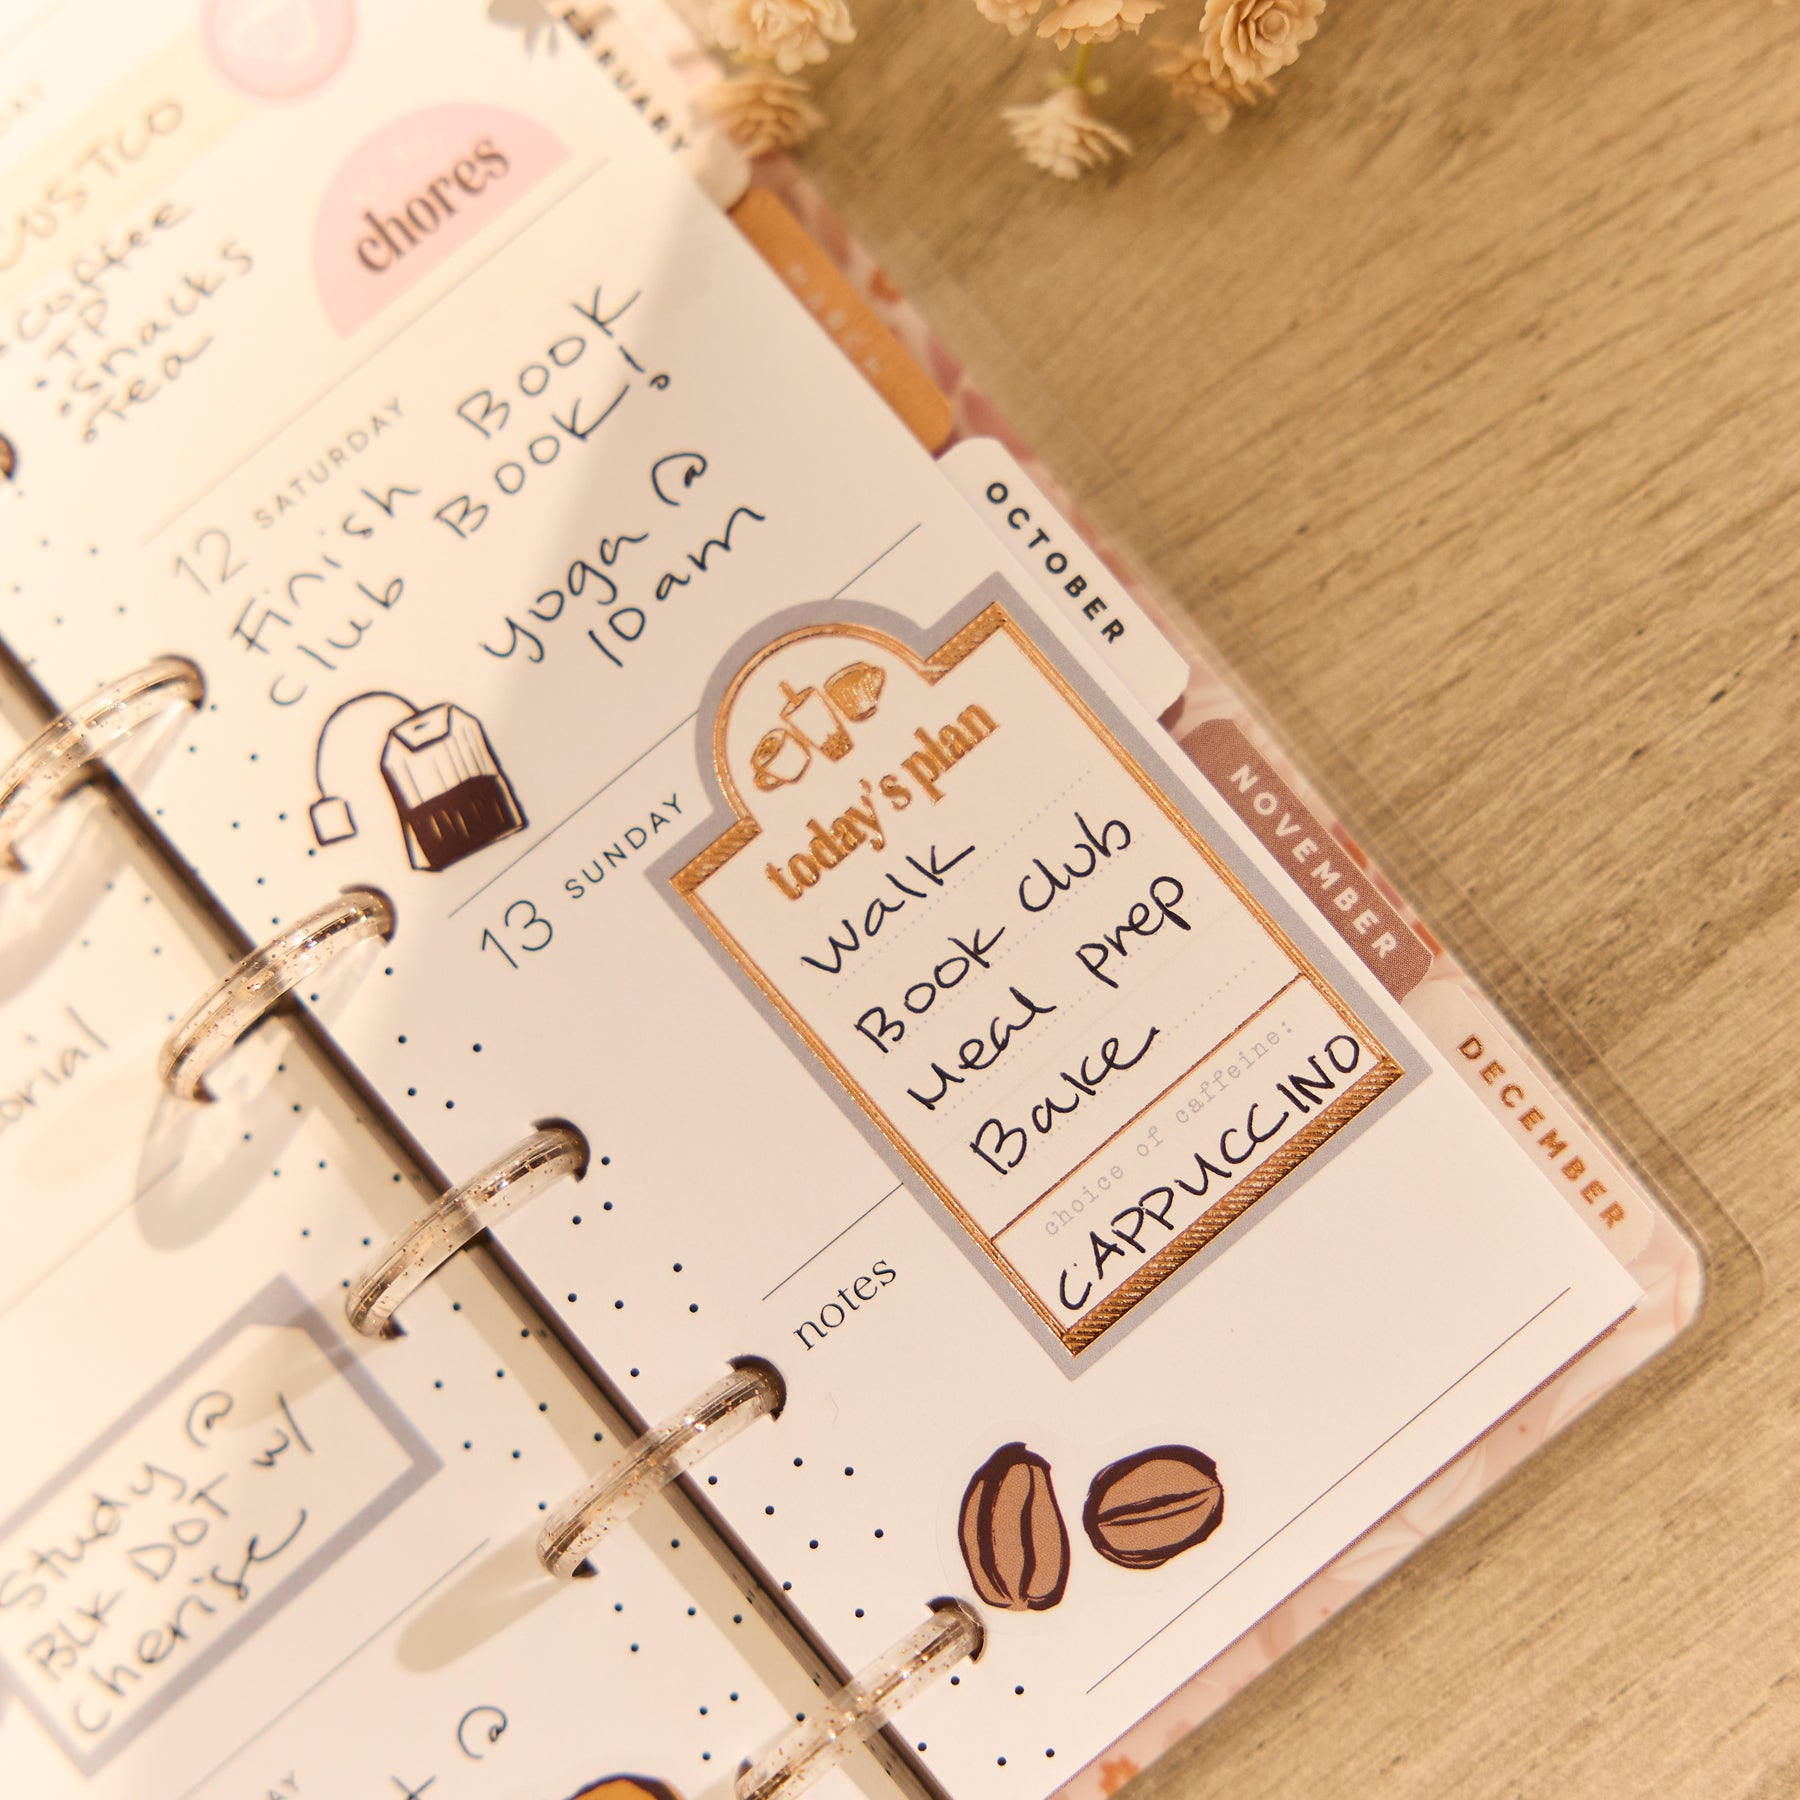 COSTCO
• coffee
• TP
• snacks
• Tea
chores
12 SATURDAY
Finish Book
club Book!
yoga @
10am
13 SUNDAY
today's plan
Walk
Book Club
Meal prep
Bake
choice of caffeine:
CAPPUCCINO
notes
orial
Study @
BLK DOT w/
Cherise
@
MARCH
OCTOBER
NOVEMBER
DECEMBER